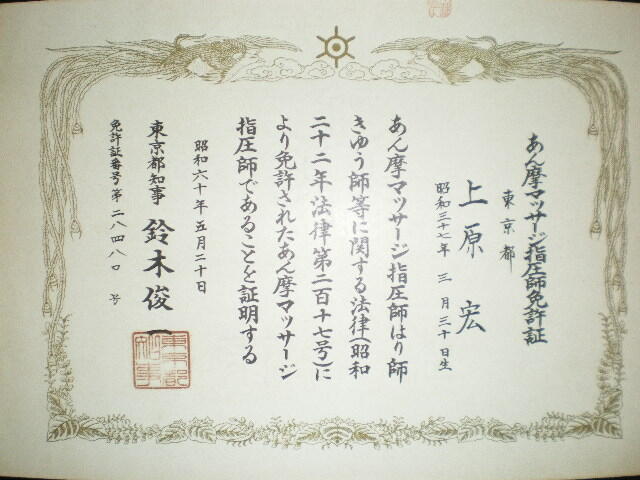 あん摩マッサージ指圧師免許証
東京都
上原宏
昭和三十七年三月三十日生
あん摩マッサージ指圧師はり師
きゆう師等に関する法律(昭和
二十二年法律第二百十七号)に
より免許されたあん摩マッサージ
指圧師であることを証明する
昭和六十年五月二十日
東京都知事 鈴木俊一
免許証番号第二八四八〇号